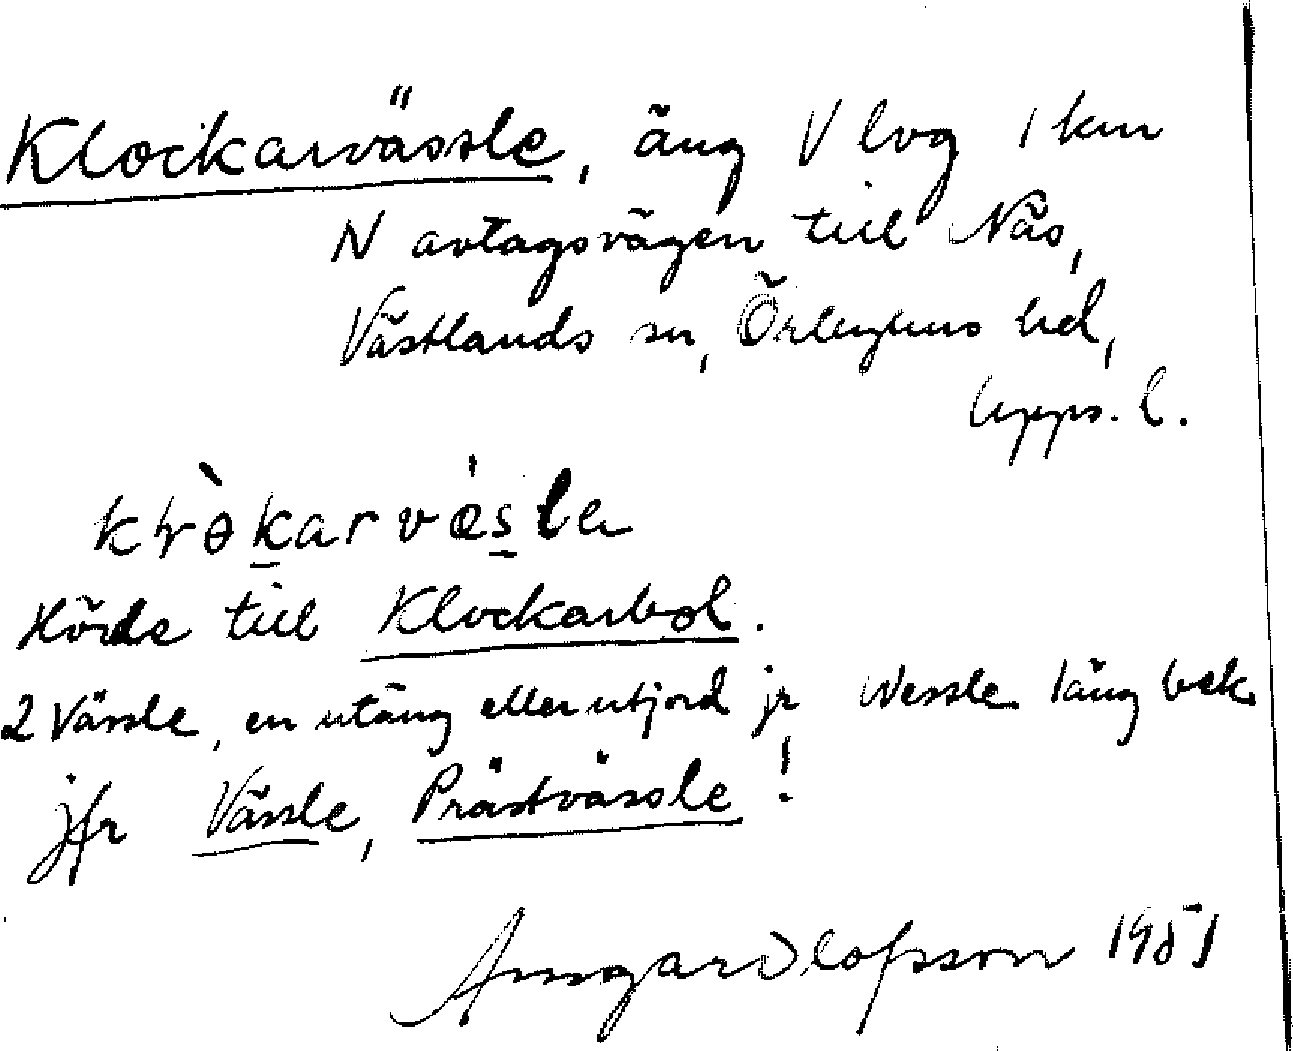 Klockarvässle, äng V lvg 1 km
N avtagsvägen till Näs,
Västlands sn, Örbyhus hd,
Upps. l.
Hörde till Klockarbol.
2 Vässle, en utäng eller utjord jr Wessle äng
jfr Vässle, Prästvässle!
Ansgar Olofsson 1951